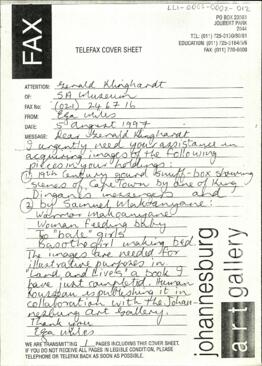 LLI-0003-0002-012
FAX
PO BOX 23561
JOUBERT PARK
2044
TEL: (011) 725-3130/80/81
EDUCATION (011) 725-3184/5/6
FAX: (011) 720-6000
TELEFAX COVER SHEET
ATTENTION: Gerald Klinghardt
OF: SA Museum
FAX No: (021) 246716
FROM: Elza Miles
DATE: 5 August 1997
MESSAGE: Dear Gerald Klinghardt
I urgently need your assistance in
acquiring images of the following
pieces in your holdings:
① 19th Century gourd snuff-box showing
scenes of Cape Town by one of King
Dingane's messengers and
② by Samuel Makoanyane:
Warrior Makoanyane
Woman Feeding baby
To "bale" girls
Basotho girl making bed
The images are needed for
illustrative purposes in
"Land and Lives" a book I
have just completed. Human
Rousseau is publishing it in
collaboration with the Johan-
nesburg Art Gallery.
Thank you
Elza Miles
WE ARE TRANSMITTING 1 PAGES INCLUDING THIS COVER SHEET.
IF YOU DO NOT RECEIVE ALL PAGES IN LEGIBLE CONDITION, PLEASE
TELEPHONE OR TELEFAX BACK AS SOON AS POSSIBLE.
johannesburg
art gallery